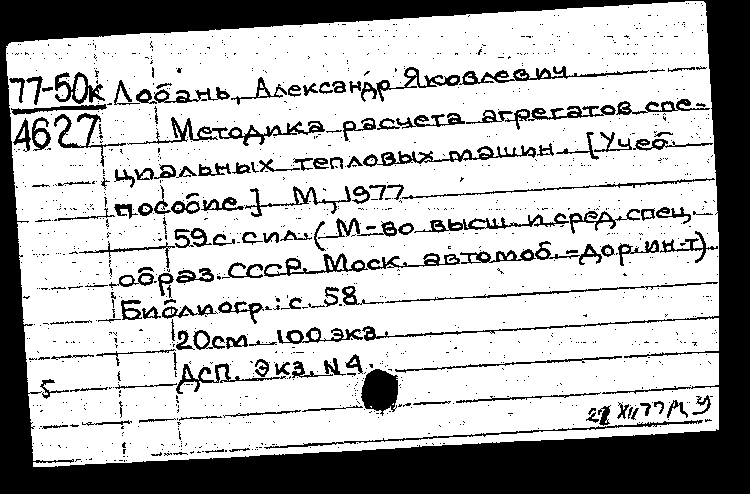 77-50к Лобань, Александр Яковлевич.
4627 Методика расчета агрегатов спе-
циальных тепловых машин. [Учеб.
пособие.]. М., 1977.
59 с. с ил. (М-во высш. и сред. спец.
образ. СССР. Моск. автомоб.-дор. ин-т).
Библиогр.: с. 58.
20см. 100 экз.
ДСП. Экз. N 4.
5
XII 77